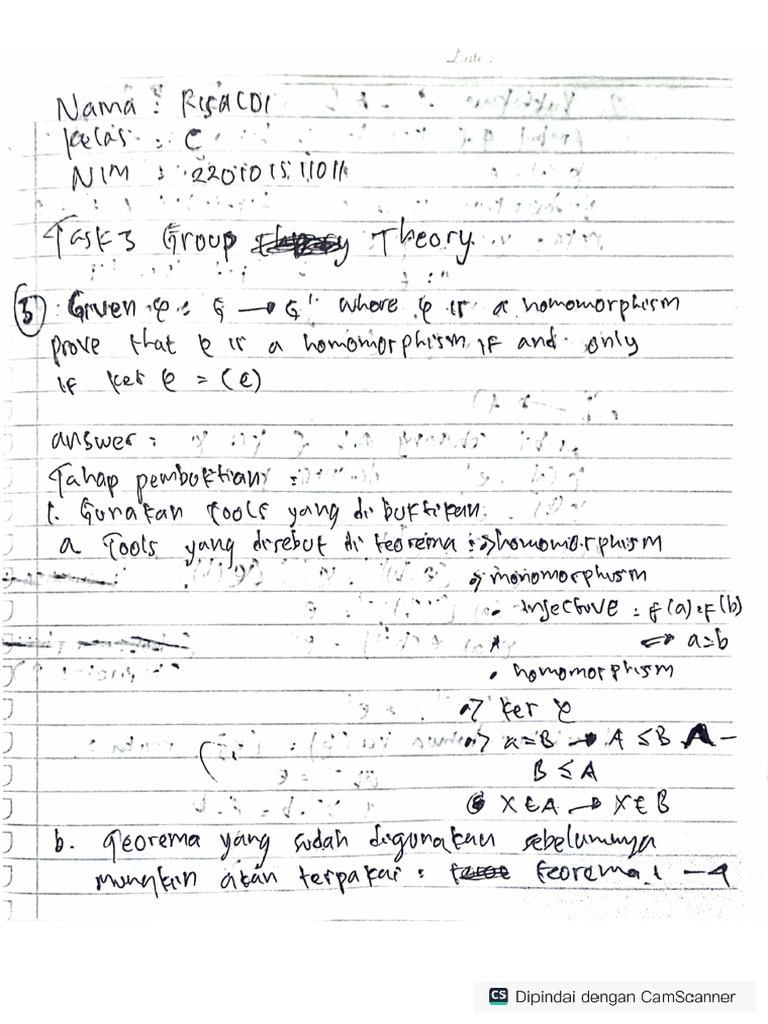 Date :
Nama : RISACDI
Kelas : C
NIM : 220101511011
Task 3 Group Theory
5 Given φ : G → G' where φ is a homomorphism
prove that φ is a homomorphism if and only
if ker φ = (e)
answer :
Tahap pembuktian :
1. Gunakan tools yang dibuktikan
a Tools yang disebut di teorema :=> homomorphism
=> monomorphism
• Injective : f(a) = f(b)
⇔ a=b
• homomorphism
=> Ker φ
=> a=B → A ≤ B A -
B ≤ A
X ∈ A → X ∈ B
b. Teorema yang sudah digunakan sebelumnya
mungkin akan terpakai : teorema 1 - 4
CS Dipindai dengan CamScanner